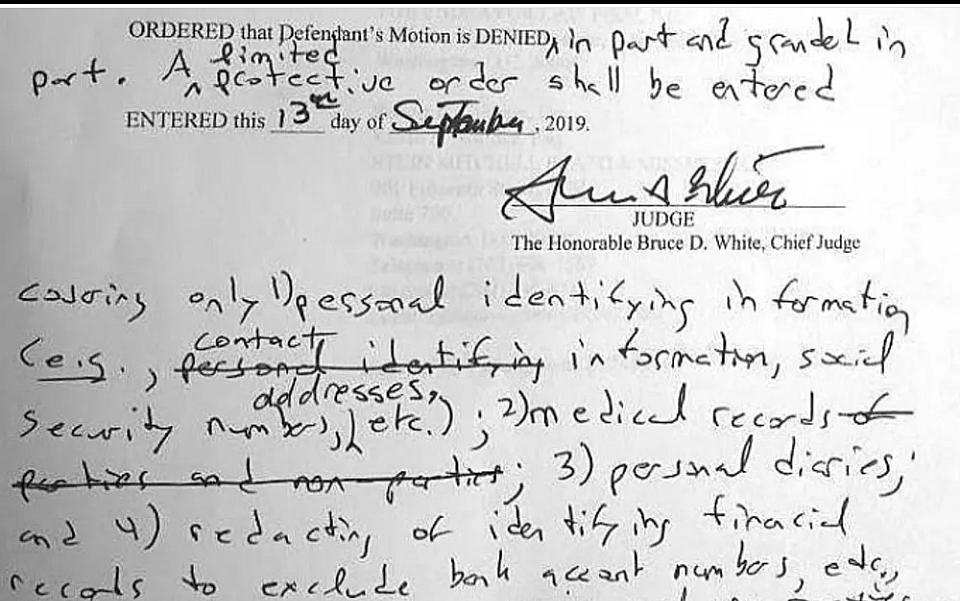 ORDERED that Defendant's Motion is DENIED, in part and granted in
part. A limited protective order shall be entered
ENTERED this 13th day of September, 2019.
JUDGE
The Honorable Bruce D. White, Chief Judge
covering only 1) personal identifying information
(e.g., contact personal identifying information, social
security numbers, addresses, etc.); 2) medical records of
parties and non parties; 3) personal diaries;
and 4) redacting of identifying financial
records to exclude bank account numbers, etc.,